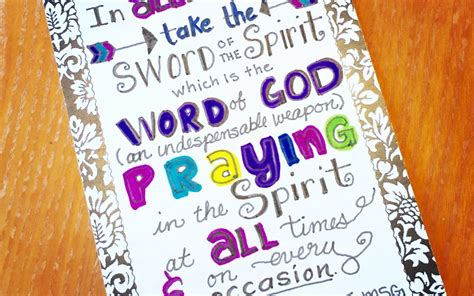 In all
take the
SWORD OF THE Spirit
which is the
WORD of GOD
(an indespensable weapon)
PRAYING
in the Spirit
at ALL times
& on every
occasion.
MSG